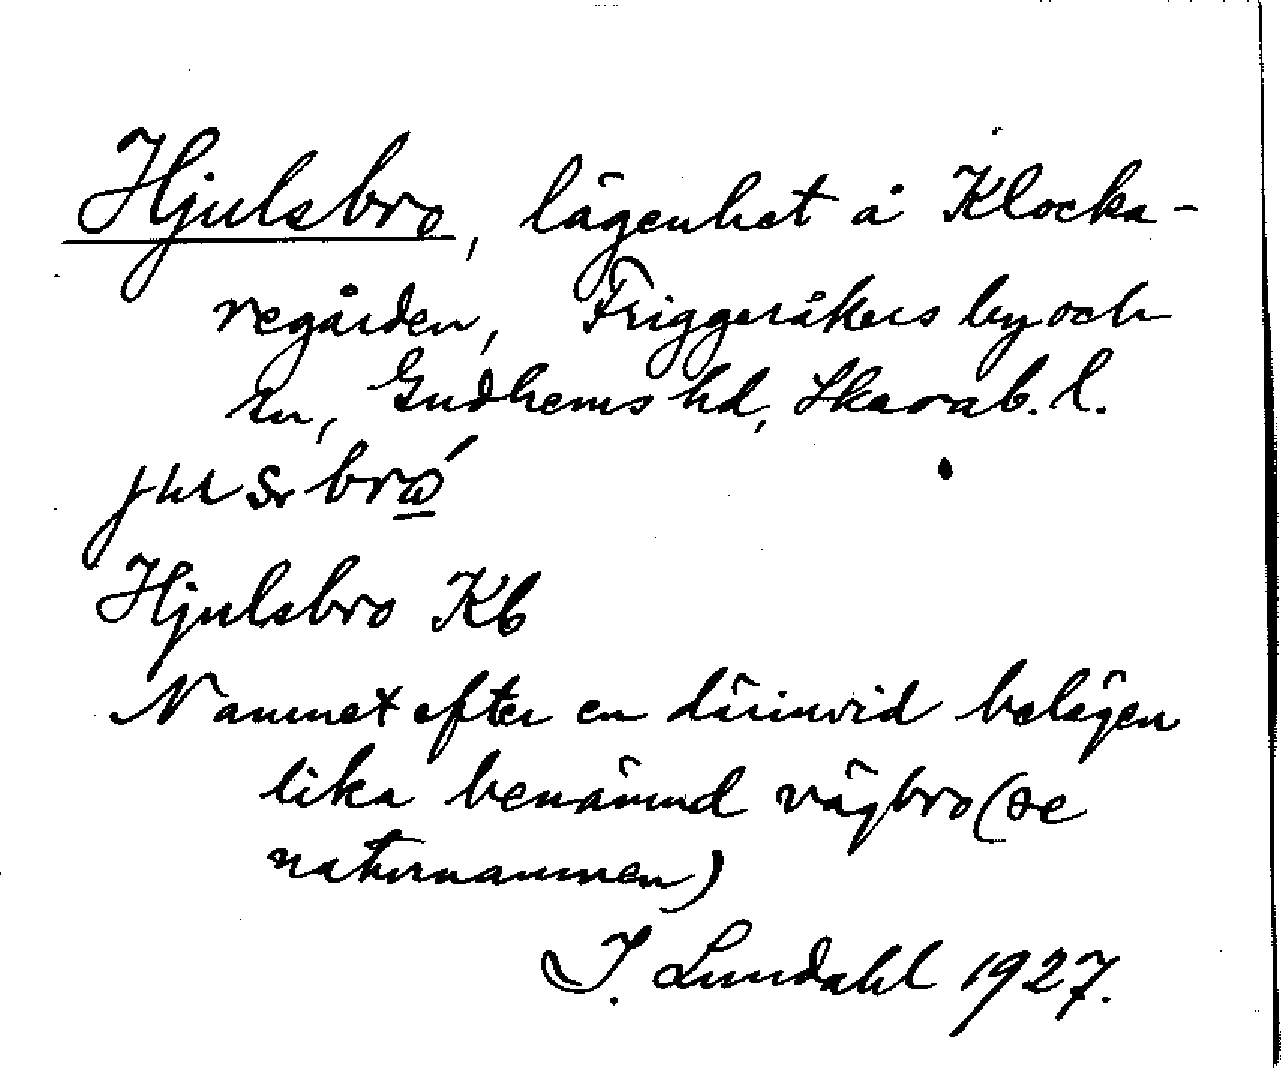 Hjulsbro, lägenhet å Klocka-
regården, Friggeråkers by och
sn, Gudhems hd, Skarab. l.
Hjulsbro Kb
Namnet efter en därinvid belägen
lika benämnd vägbro (se
naturnamnen)
I. Lundahl 1927.